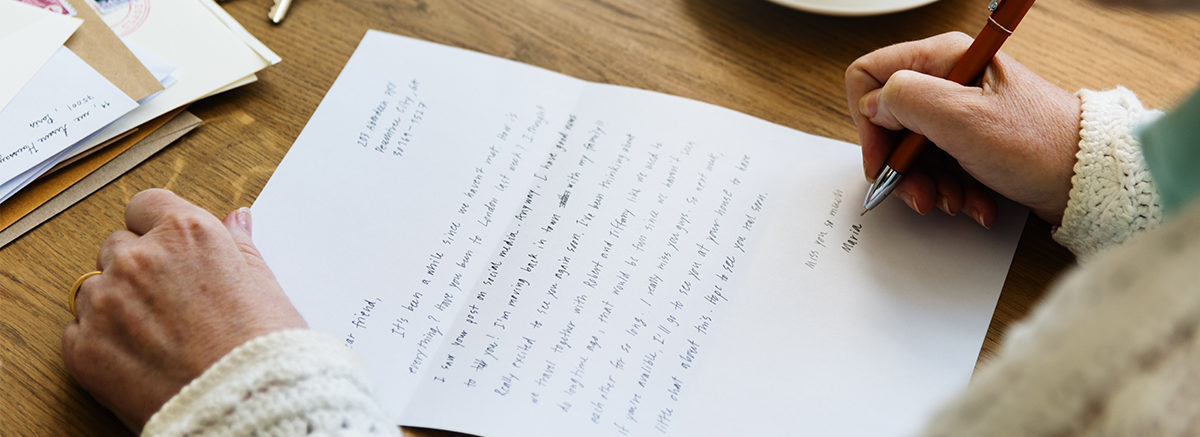 253 Aberdeen PKY
Peachtree City, GA
30789-3357
ar friend,
It's been a while since we haven't met. How is
everything? Have you been to London last week? I thought
I saw your post on social media. Anyway, I have good news
to you! I'm moving back in town with my family!!
Really excited to see you again soon. I've been thinking about
we travel together with Robert and Tiffany like we used to
do longtime ago, that would be fun since we haven't seen
each other for so long. I really miss you guys. So next week,
if you've availible, I'll go to see you at your house to have
little chat about this. Hope to see you real soon.
Miss you so much!
Maria
75001, Paris